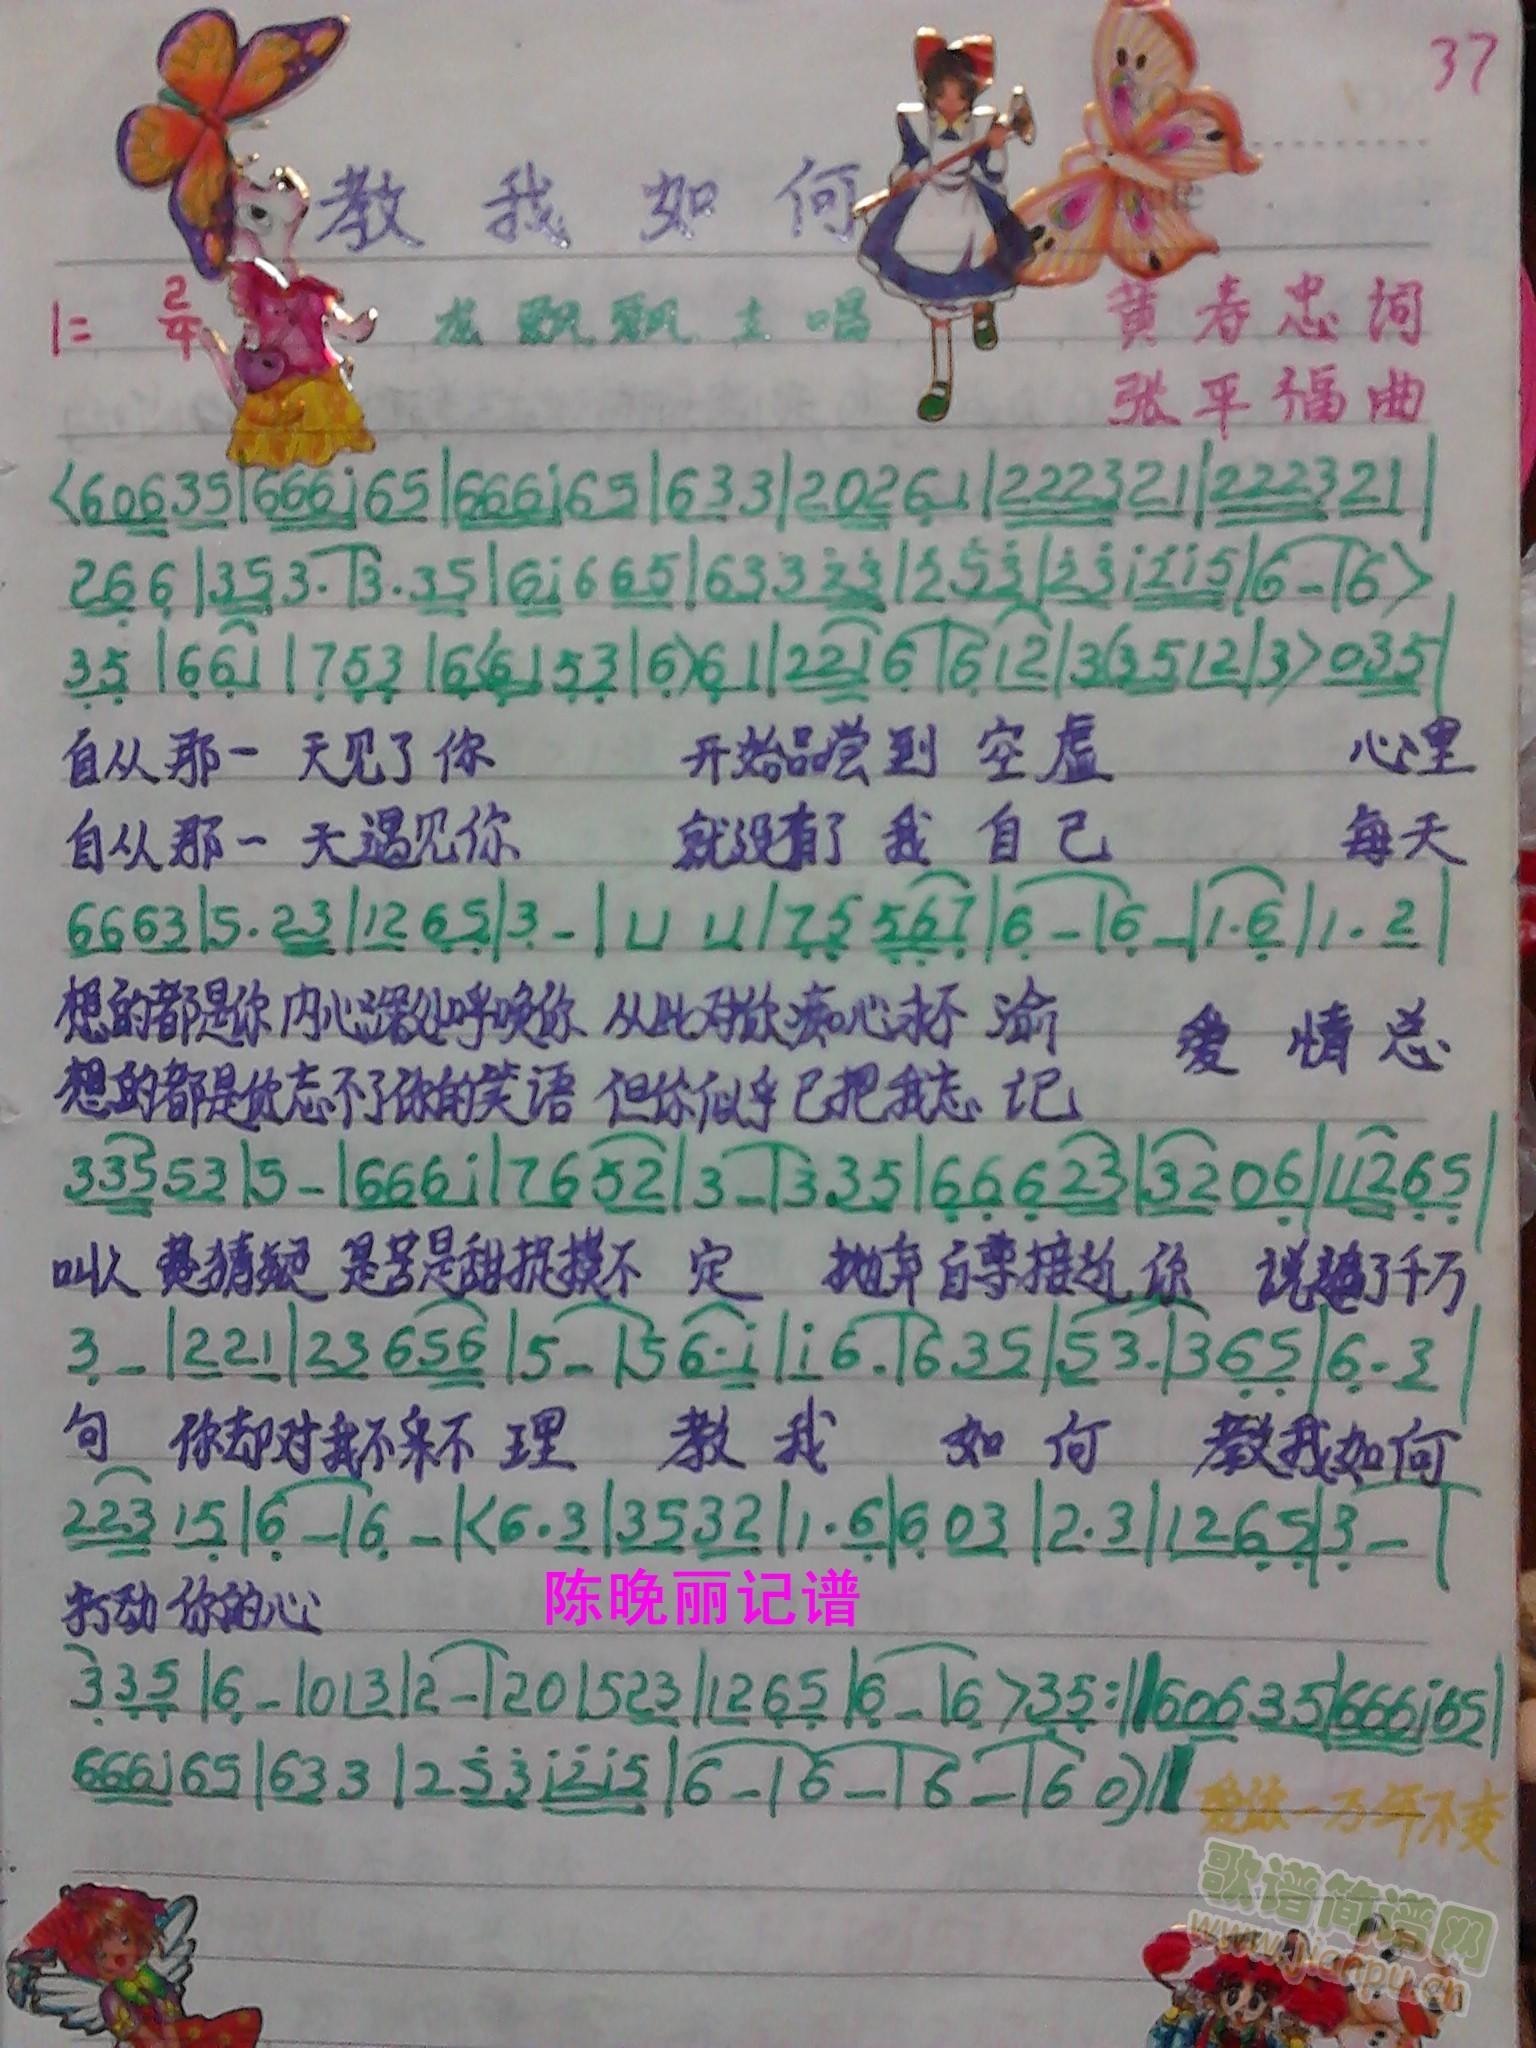 37
教我如何
1= 2/4 龙飘飘主唱 黄春忠词
张平福曲
<60635|666i65|666i65|633|20261|222321|222321|
266|353.|3.35|6i665|63323|253|23i2i5|6-|6>
35|661|7053|6<6153|6>61|2216|612|3<3512|3>035|
自从那一天见了你 开始品尝到空虚 心里
自从那一天遇见你 就没有了我自己 每天
6663|5.23|1265|3-|11 11|75567|6-|6-|1.6|1.2|
想的都是你内心深处呼唤你 从此对你痴心永不渝 爱情总
想的都是你忘不了你的笑语 但你似乎已把我忘记
33553|5-|666i|7652|3-|335|66623|3206|11265|
叫人费猜疑是苦是甜捉摸不定 抛弃自尊接近你 说尽了千万
3-|221|23656|5-|56.i|i6.|635|53-|365|6.3|
句 你却对我不采不理 教我如何 教我如何
22315|6-|6-|<6.3|3532|1.6|603|2.3|1265|3-|
打动你的心
陈晚丽记谱
335|6-|013|2-|20|523|1265|6-|6>35:||60635|666i65|
666i65|633|253i2i5|6-|6-|6-|60)||
爱你一万年不变
歌谱简谱网
www.jianpu.cn